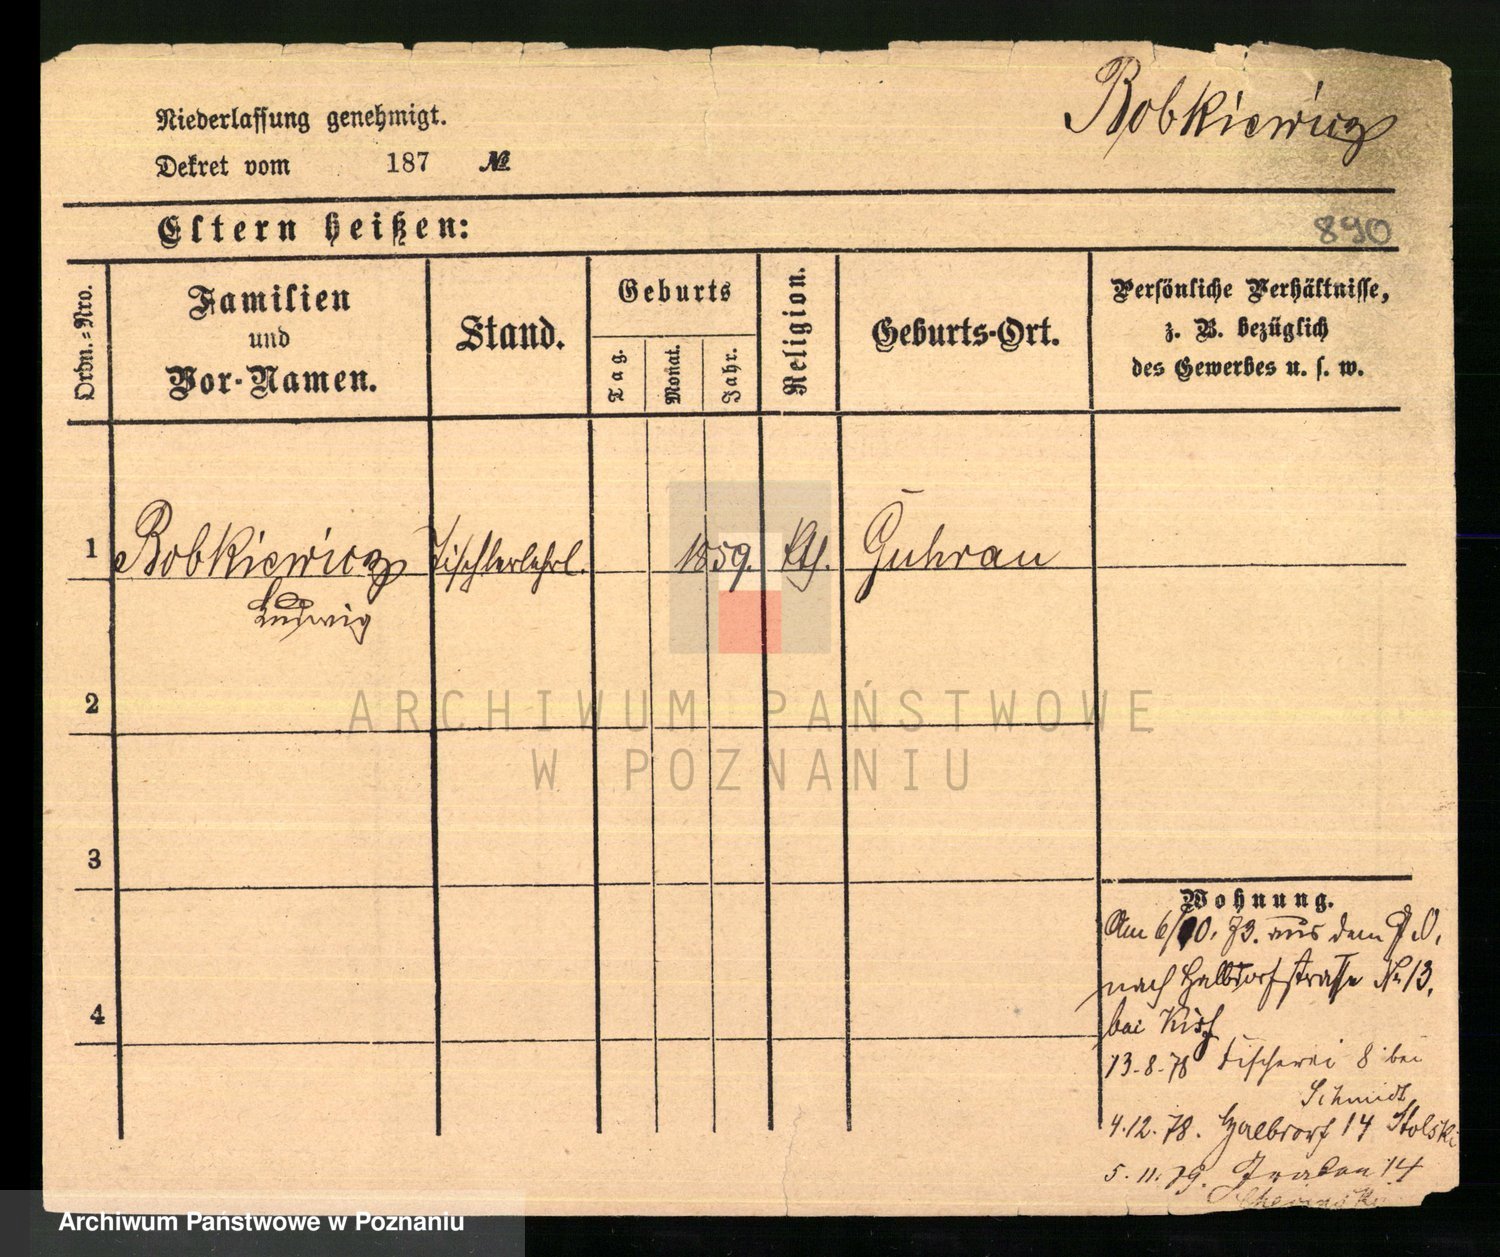 Bobkiewicz
Niederlassung genehmigt.
Dekret vom 187 №
Eltern heißen:
890
Ordn.-Nro.
Familien
und
Vor-Namen.
Stand.
Geburts
Tag.
Monat.
Jahr.
Religion.
Geburts-Ort.
Persönliche Verhältnisse,
z. B. bezüglich
des Gewerbes u. s. w.
1 Bobkiewicz Tischlerlehrl. 1859. kth. Guhrau
Ludwig
2
ARCHIWUM PAŃSTWOWE
W POZNANIU
3
Wohnung.
Am 6/10. 73. aus dem P. O.
nach Halbdorfstrasse No 13.
4
bei
13.8.78 Fischerei 8 bei
Schmidt
4.12.78. Halbdorf 14 Stolski
5.11.79. Graben 14
Archiwum Państwowe w Poznaniu